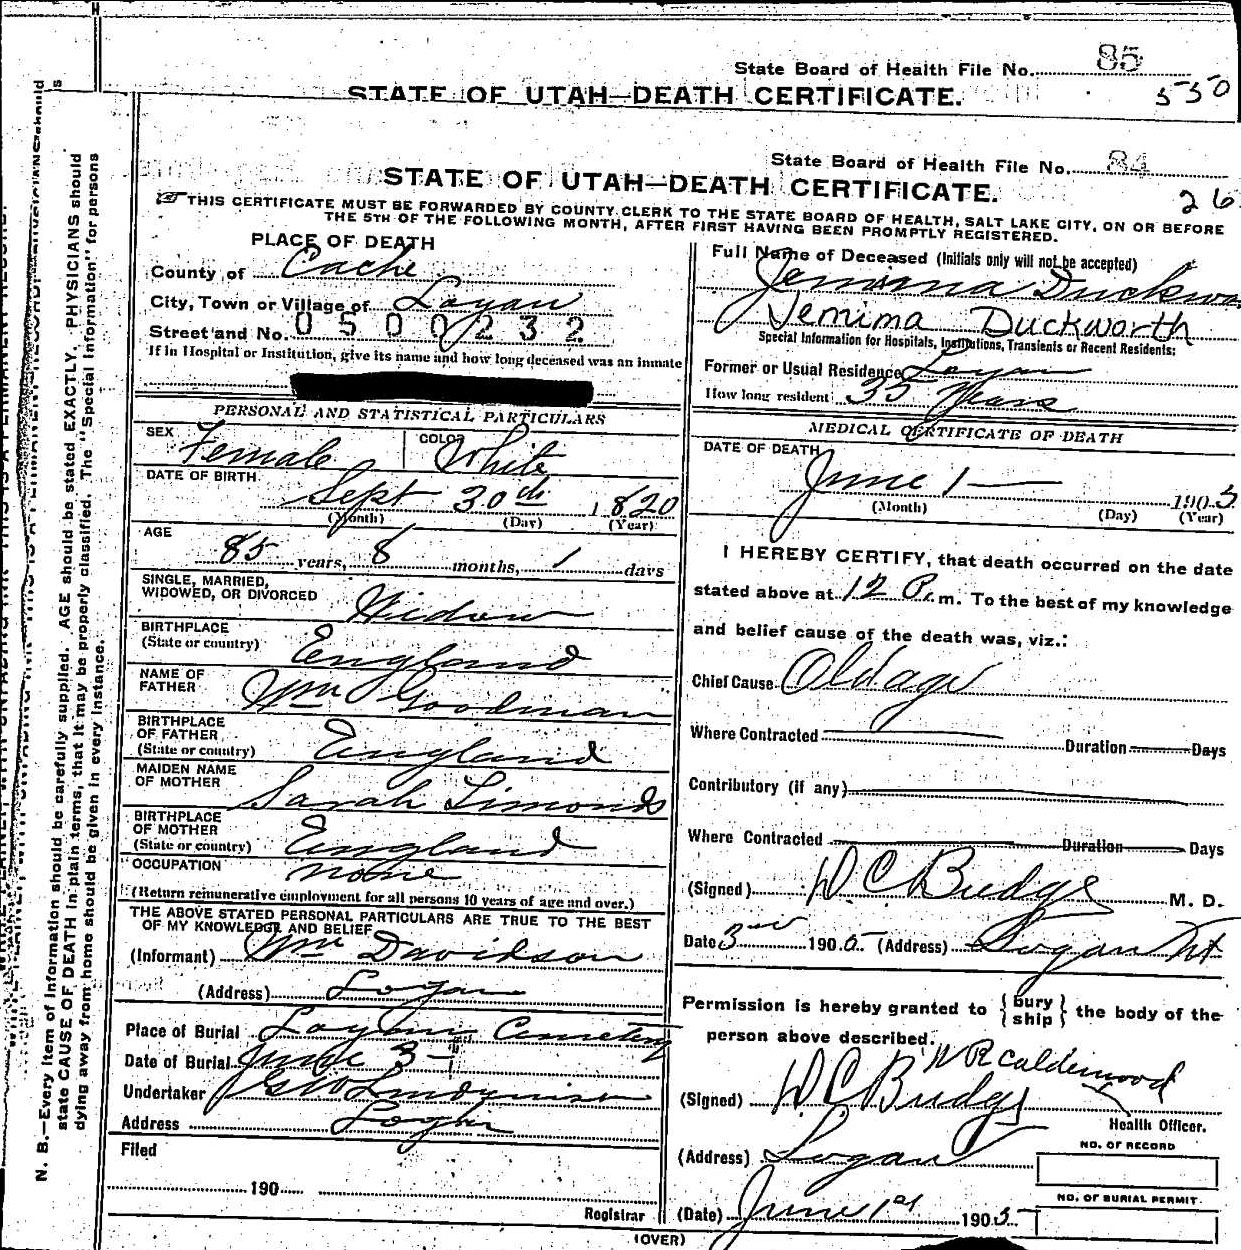 State Board of Health File No. 85
STATE OF UTAH—DEATH CERTIFICATE.
550
State Board of Health File No. 84
STATE OF UTAH—DEATH CERTIFICATE.
26
THIS CERTIFICATE MUST BE FORWARDED BY COUNTY CLERK TO THE STATE BOARD OF HEALTH, SALT LAKE CITY, ON OR BEFORE
THE 5TH OF THE FOLLOWING MONTH, AFTER FIRST HAVING BEEN PROMPTLY REGISTERED.
PLACE OF DEATH
County of Cache
City, Town or Village of Logan
Street and No. 0500232
If in Hospital or Institution, give its name and how long deceased was an inmate
PERSONAL AND STATISTICAL PARTICULARS
SEX Female COLOR White
DATE OF BIRTH
Sept 30th 1820
(Month) (Day) (Year)
AGE
85 years, 8 months, 1 days
SINGLE, MARRIED,
WIDOWED, OR DIVORCED Widow
BIRTHPLACE
(State or country) England
NAME OF
FATHER Wm Goodman
BIRTHPLACE
OF FATHER
(State or country) England
MAIDEN NAME
OF MOTHER Sarah Simonds
BIRTHPLACE
OF MOTHER
(State or country) England
OCCUPATION none
(Return remunerative employment for all persons 10 years of age and over.)
THE ABOVE STATED PERSONAL PARTICULARS ARE TRUE TO THE BEST
OF MY KNOWLEDGE AND BELIEF
(Informant) Wm Davidson
(Address) Logan
Place of Burial Logan Cemetery
Date of Burial June 3
Undertaker
Address Logan
Filed
190
Registrar
Full Name of Deceased (Initials only will not be accepted)
Jemima
Jemima Duckworth
Special Information for Hospitals, Institutions, Transients or Recent Residents:
Former or Usual Residence Logan
How long resident 35 years
MEDICAL CERTIFICATE OF DEATH
DATE OF DEATH
June 1 1905
(Month) (Day) (Year)
I HEREBY CERTIFY, that death occurred on the date
stated above at 12 P.m. To the best of my knowledge
and belief cause of the death was, viz.:
Chief Cause Old age
Where Contracted Duration Days
Contributory (if any)
Where Contracted Duration Days
(Signed) D C Budge M. D.
Date 3rd 1905 (Address) Logan Ut
Permission is hereby granted to {bury ship} the body of the
person above described.
W R Calderwood
(Signed) D C Budge
Health Officer.
(Address) Logan
NO. OF RECORD
NO. OF BURIAL PERMIT
(Date) June 1st 1905
(OVER)
N. B.—Every item of information should be carefully supplied. AGE should be stated EXACTLY. PHYSICIANS should
state CAUSE OF DEATH in plain terms, that it may be properly classified. The "Special Information" for persons
dying away from home should be given in every instance.